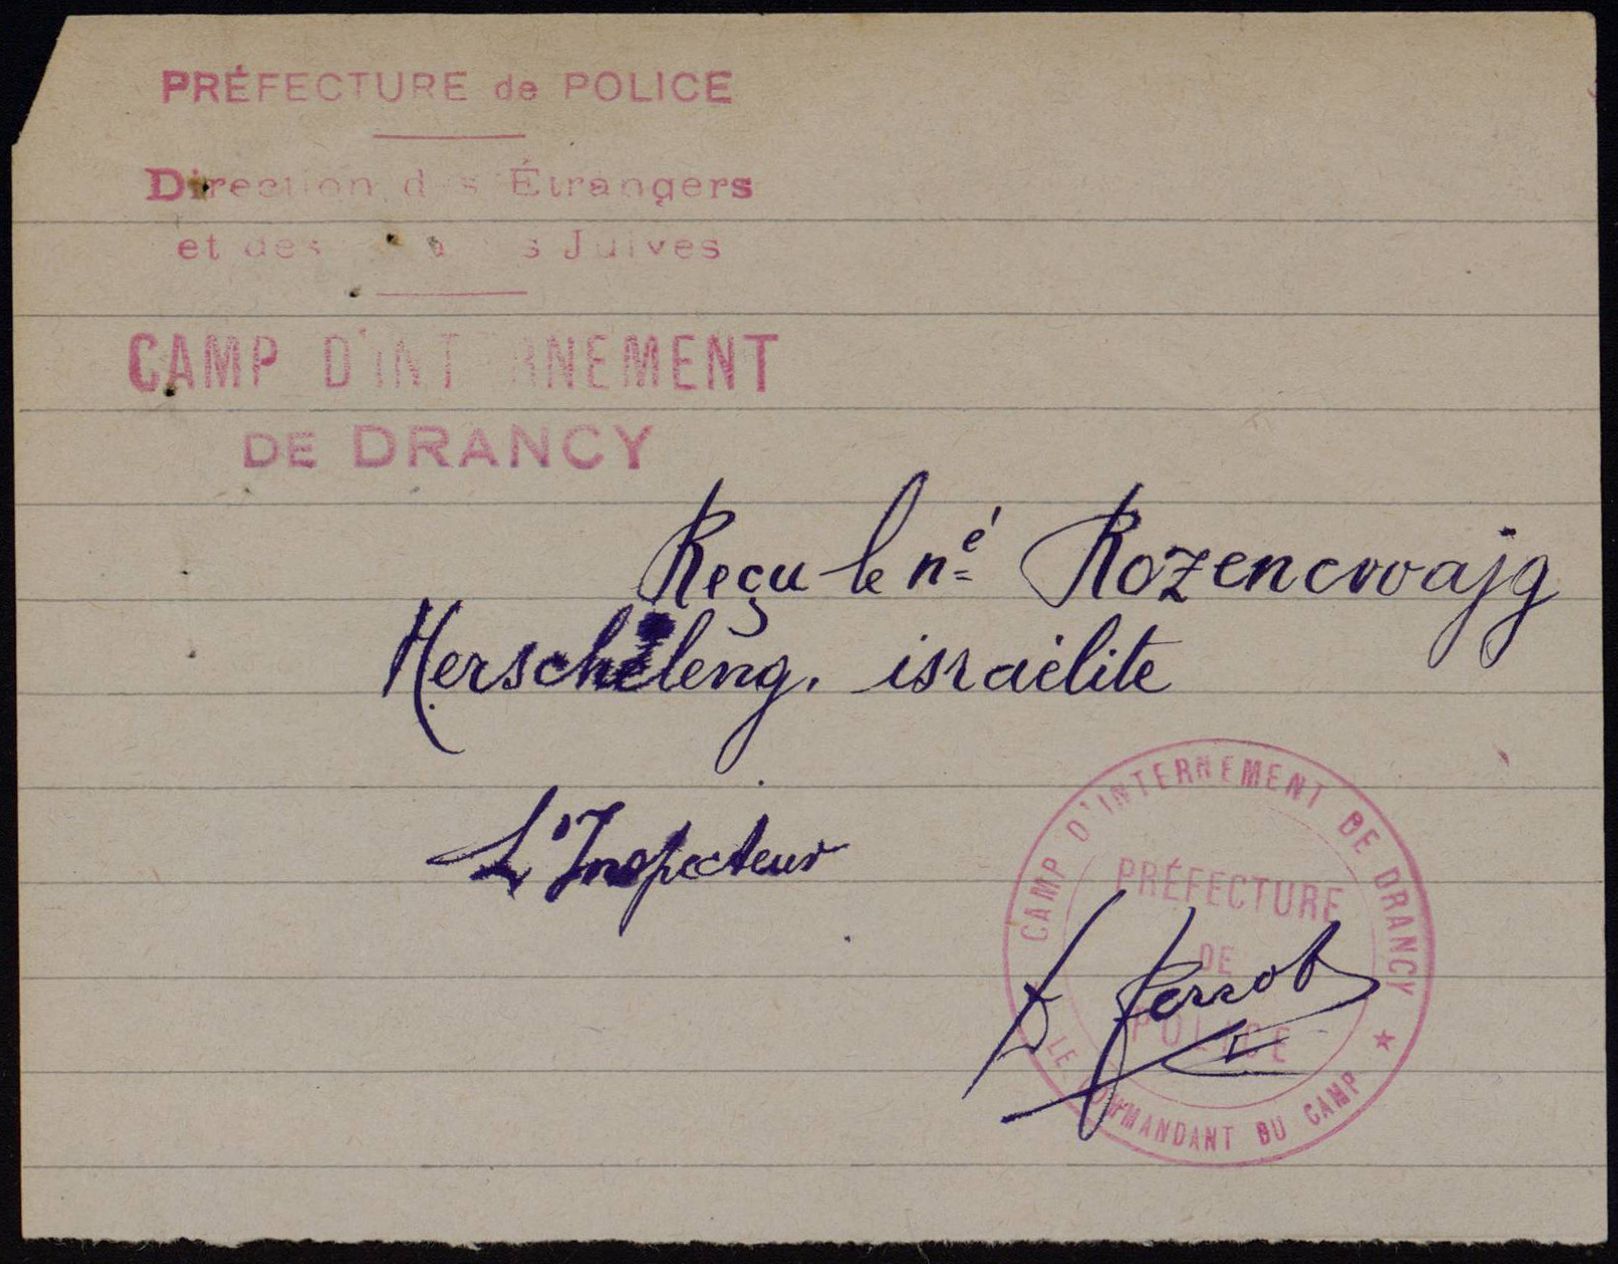 PRÉFECTURE de POLICE
Direction des Étrangers
et des Juives
CAMP D'INTERNEMENT
DE DRANCY
Reçu le né Rozencwajg
Herschileng. israélite
L'Inspecteur
CAMP D'INTERNEMENT DE DRANCY
PRÉFECTURE
DE
POLICE
LE COMMANDANT DU CAMP